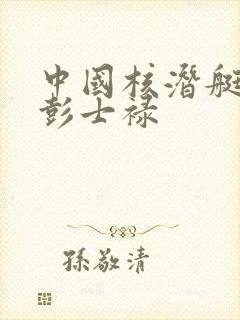 中國核潛艇
彭士祿
孫敬清